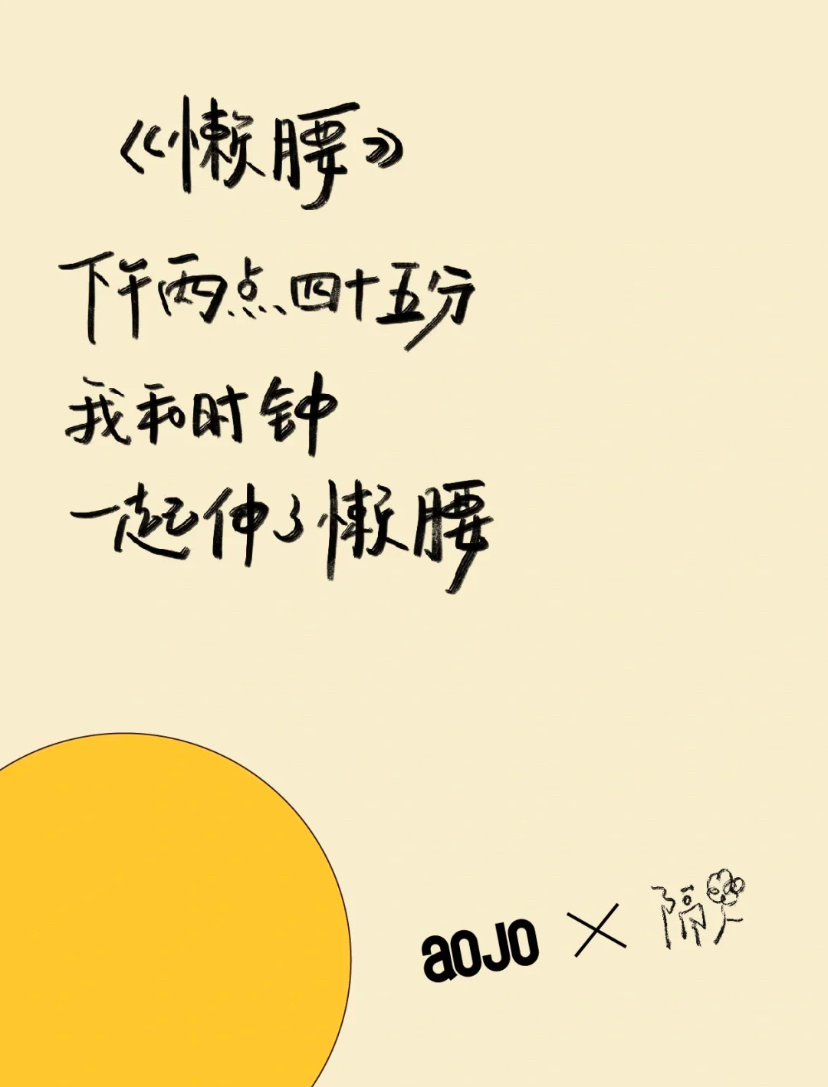 《懒腰》
下午两点四十五分
我和时钟
一起伸了懒腰
aojo × 隔花人